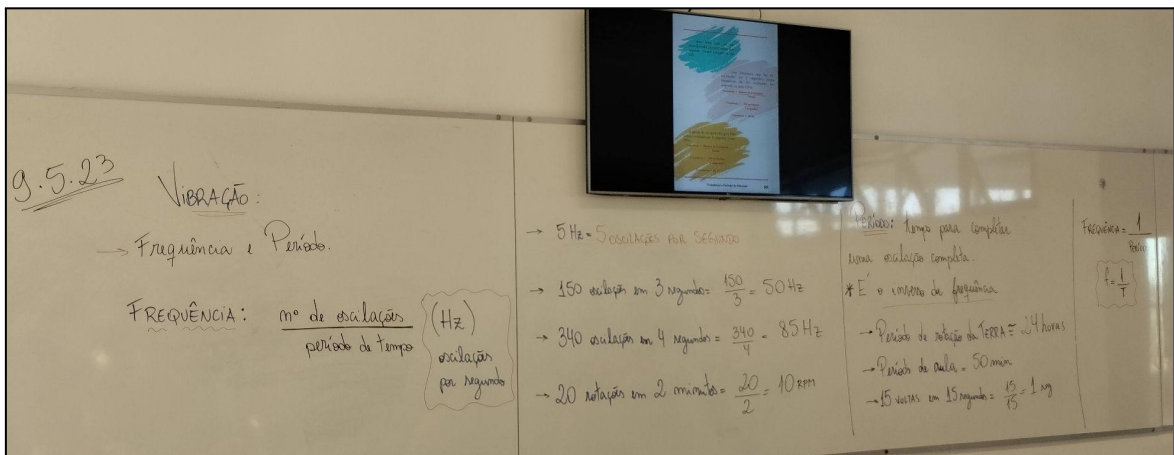 9.5.23
VIBRAÇÃO:
→ Frequência e Período.
FREQUÊNCIA: nº de oscilações / período de tempo (Hz)
oscilações
por segundo
→ 5 Hz = 5 OSCILAÇÕES POR SEGUNDO
→ 150 oscilações em 3 segundos = 150/3 = 50 Hz
→ 340 oscilações em 4 segundos = 340/4 = 85 Hz
→ 20 rotações em 2 minutos = 20/2 = 10 RPM
PERÍODO: tempo para completar
uma oscilação completa.
* É o inverso da frequência
→ Período de rotação da TERRA ≅ 24 horas
→ Período de aula = 50 min
→ 15 VOLTAS em 15 segundos = 15/15 = 1 sg
*
FREQUÊNCIA = 1 / Período
f = 1/T